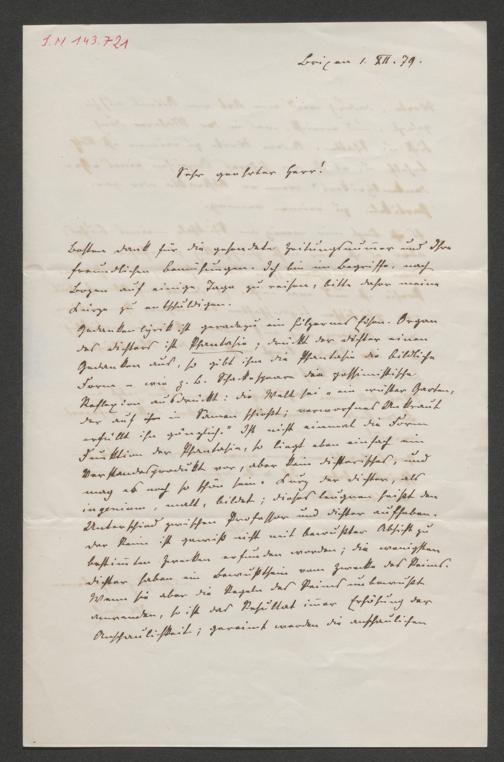 I.N 143.721
Brixen 1. XII. 79.
Sehr geehrter Herr!
Besten Dank für die gesendete Zeitungsnummer und Ihre
freundlichen Bemühungen. Ich bin im Begriffe, nach
Bozen auf einige Tage zu reisen, bitte daher meine
Kürze zu entschuldigen.
Gedankenlyrik ist geradezu ein hölzernes Eisen. Organ
des Dichters ist Phantasie; denkt der Dichter einen
Gedanken aus, so gibt ihm die Phantasie die bildliche
Form – wie z. B. Shakespeare die pessimistische
Reflexion ausdrückt: die Welt sei „ein wüster Garten,
der auf in Samen schießt; verworfnes Unkraut
erfüllt ihn gänzlich." Ist nicht einmal die Form
Funktion der Phantasie, so liegt eben einfach ein
Verstandesprodukt vor, aber kein dichterisches, und
mag es noch so schön sein. Kurz der Dichter, als
ingenium, malt, bildet; dieses leugnen heißt den
Unterschied zwischen Professor und Dichter aufheben.
Der Reim ist gewiß nicht mit bewußter Absicht zu
bestimmten Zwecken erfunden worden; die wenigsten
Dichter haben ein Bewußtsein vom Zwecke des Reims.
Wenn sie aber die Regeln des Reims unbewußt
anwenden, so ist das Resultat immer Erhöhung der
Anschaulichkeit; gereimt werden die anschaulichen